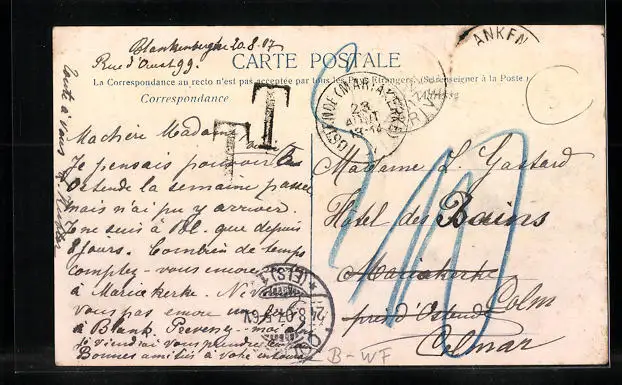 Blankenberghe 20.8.07
Rue d'Ouest 99.
CARTE POSTALE
La Correspondance au recto n'est pas acceptée par tous les Pays Etrangers. (Se renseigner à la Poste)
Correspondance
T
T
OSTENDE (MARIAKERKE)
23
AOUT
ANKEN
Ma chère Madame
Je pensais pouvoir
Ostende la semaine passée
mais n'ai pu y arriver.
Je ne suis à Bl. que depuis
8 jours. Combien de temps
comptez-vous encore
à Mariakerke.
vous pas encore
à Blank. Prevenez-moi
je viendrai vous prendre
Bonnes amitiés à votre
toute à vous
Madame L. Gastard
Hôtel des Bains
Mariakerke
près d'Ostende
Colm
Colmar
(ELS)
24.8.07.5-6N
B-WF